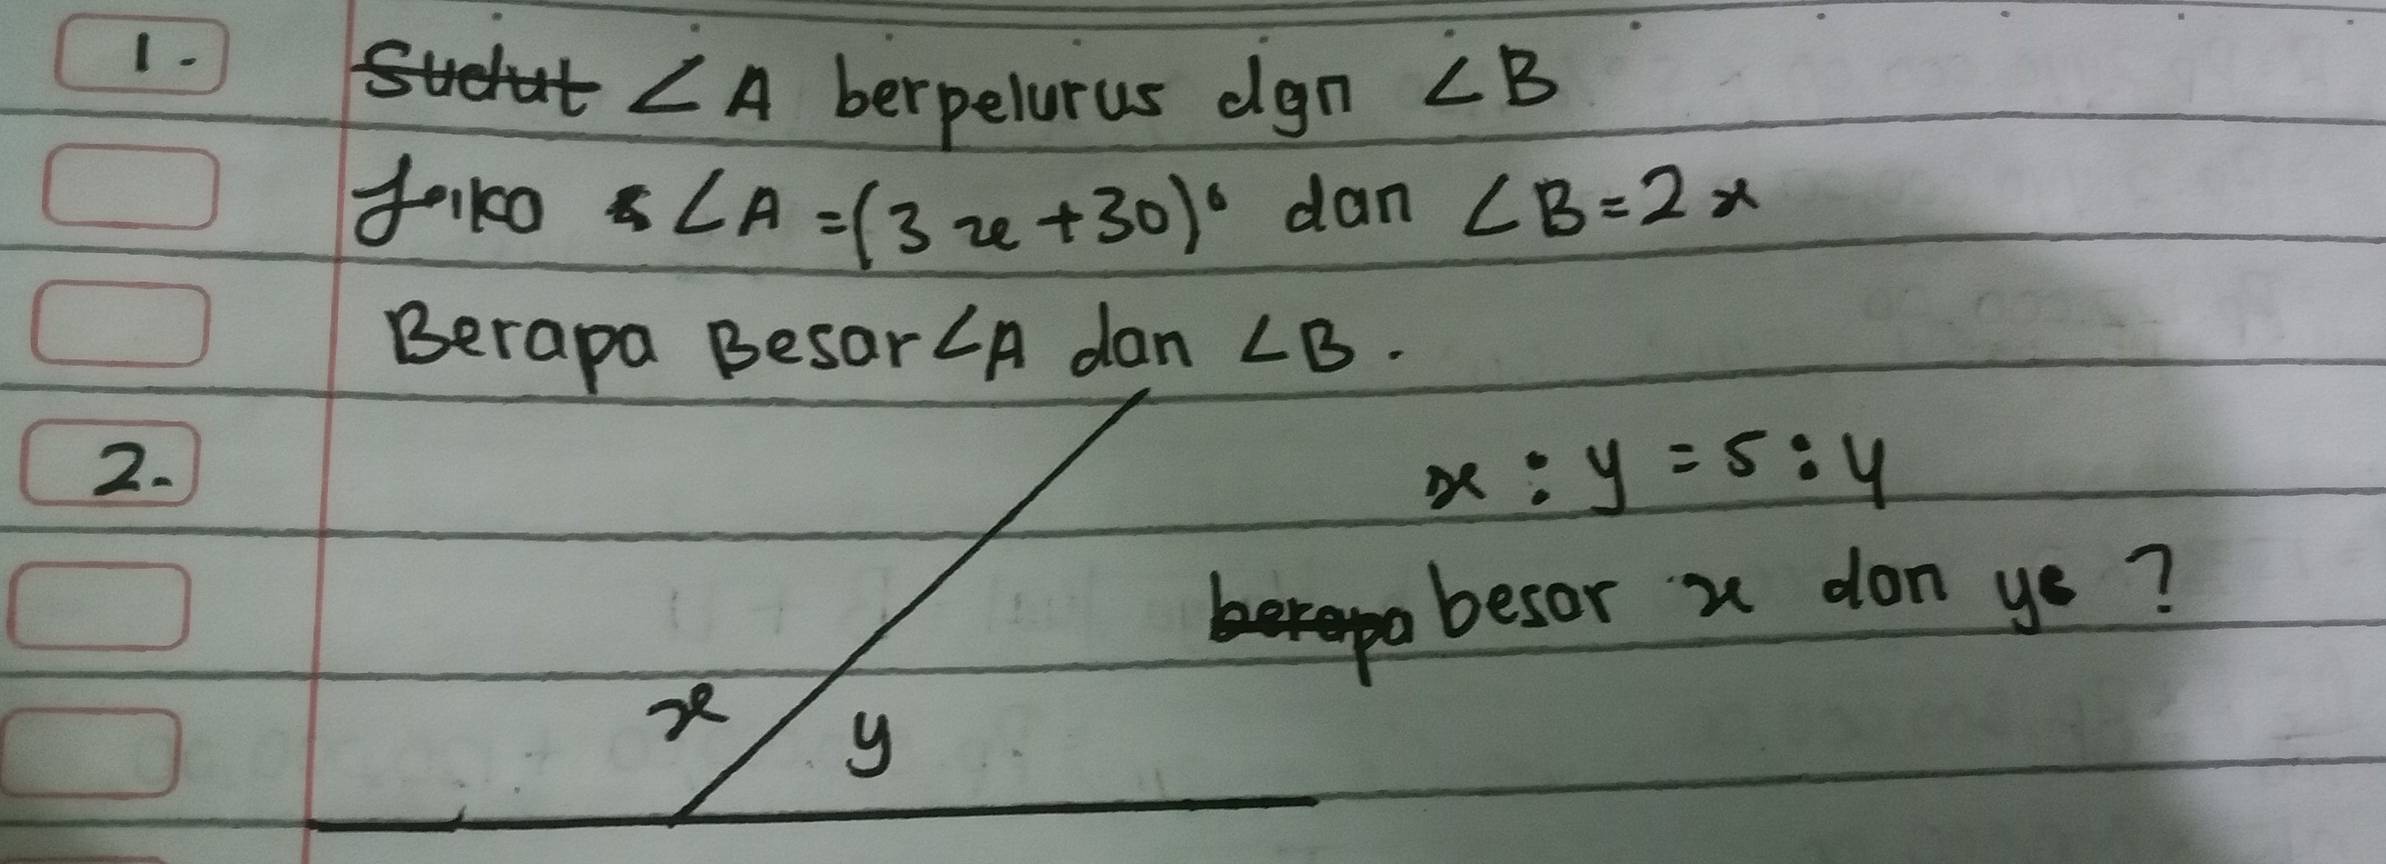 1. Sudut ∠A berpelurus dgn ∠B
Jika ∠A = (3x + 30)° dan ∠B = 2x
Berapa Besar ∠A dan ∠B.
2. x : y = 5 : 4
berapa besar x dan y ?
x
y